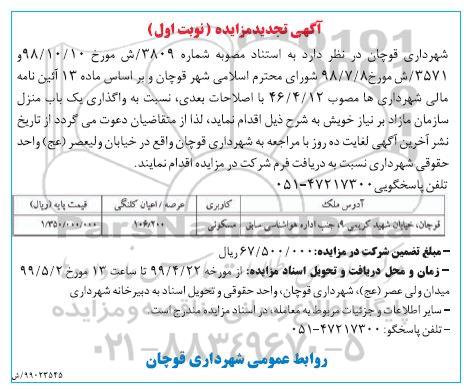 آگهی تجدیدمزایده (نوبت اول)
شهرداری قوچان در نظر دارد به استناد مصوبه شماره ۳۸۰۹/ش مورخ ۹۸/۱۰/۱۰و
۳۵۷۱/ش مورخ۹۸/۷/۸ شورای محترم اسلامی شهر قوچان و بر اساس ماده ۱۳ آئین نامه
مالی شهرداری ها مصوب ۴۶/۴/۱۲ با اصلاحات بعدی، نسبت به واگذاری یک باب منزل
سازمان مازاد بر نیاز خویش به شرح ذیل اقدام نماید، لذا از متقاضیان دعوت می گردد از تاریخ
نشر آخرین آگهی لغایت ده روز با مراجعه به شهرداری قوچان واقع در خیابان ولیعصر (عج) واحد
حقوقی شهرداری نسبت به دریافت فرم شرکت در مزایده اقدام نمایند.
تلفن پاسخگویی۴۷۲۱۷۳۰۰-۰۵۱
آدرس ملک کاربری عرصه / اعیان کلنگی قیمت پایه (ریال)
قوچان، خیابان شهید کریمی ۹، جنب اداره هواشناسی سابق مسکونی ۱۰۶/۲۰۰ ۱/۳۵۰/۰۰۰/۰۰۰
- مبلغ تضمین شرکت در مزایده: ۶۷/۵۰۰/۰۰۰ ریال
- زمان و محل دریافت و تحویل اسناد مزایده: از مورخه ۹۹/۴/۲۲ تا ساعت ۱۳ مورخ ۹۹/۵/۲
میدان ولی عصر (عج)، شهرداری قوچان، واحد حقوقی و تحویل اسناد به دبیرخانه شهرداری
- سایر اطلاعات و جزئیات مربوط به معامله، در اسناد مزایده مندرج است.
- تلفن پاسخگو: ۴۷۲۱۷۳۰۰-۰۵۱
۰۲۱-۸۸۳۴۹۶۷۰-۵
روابط عمومی شهرداری قوچان
۹۹۰۲۳۵۴۵/ش